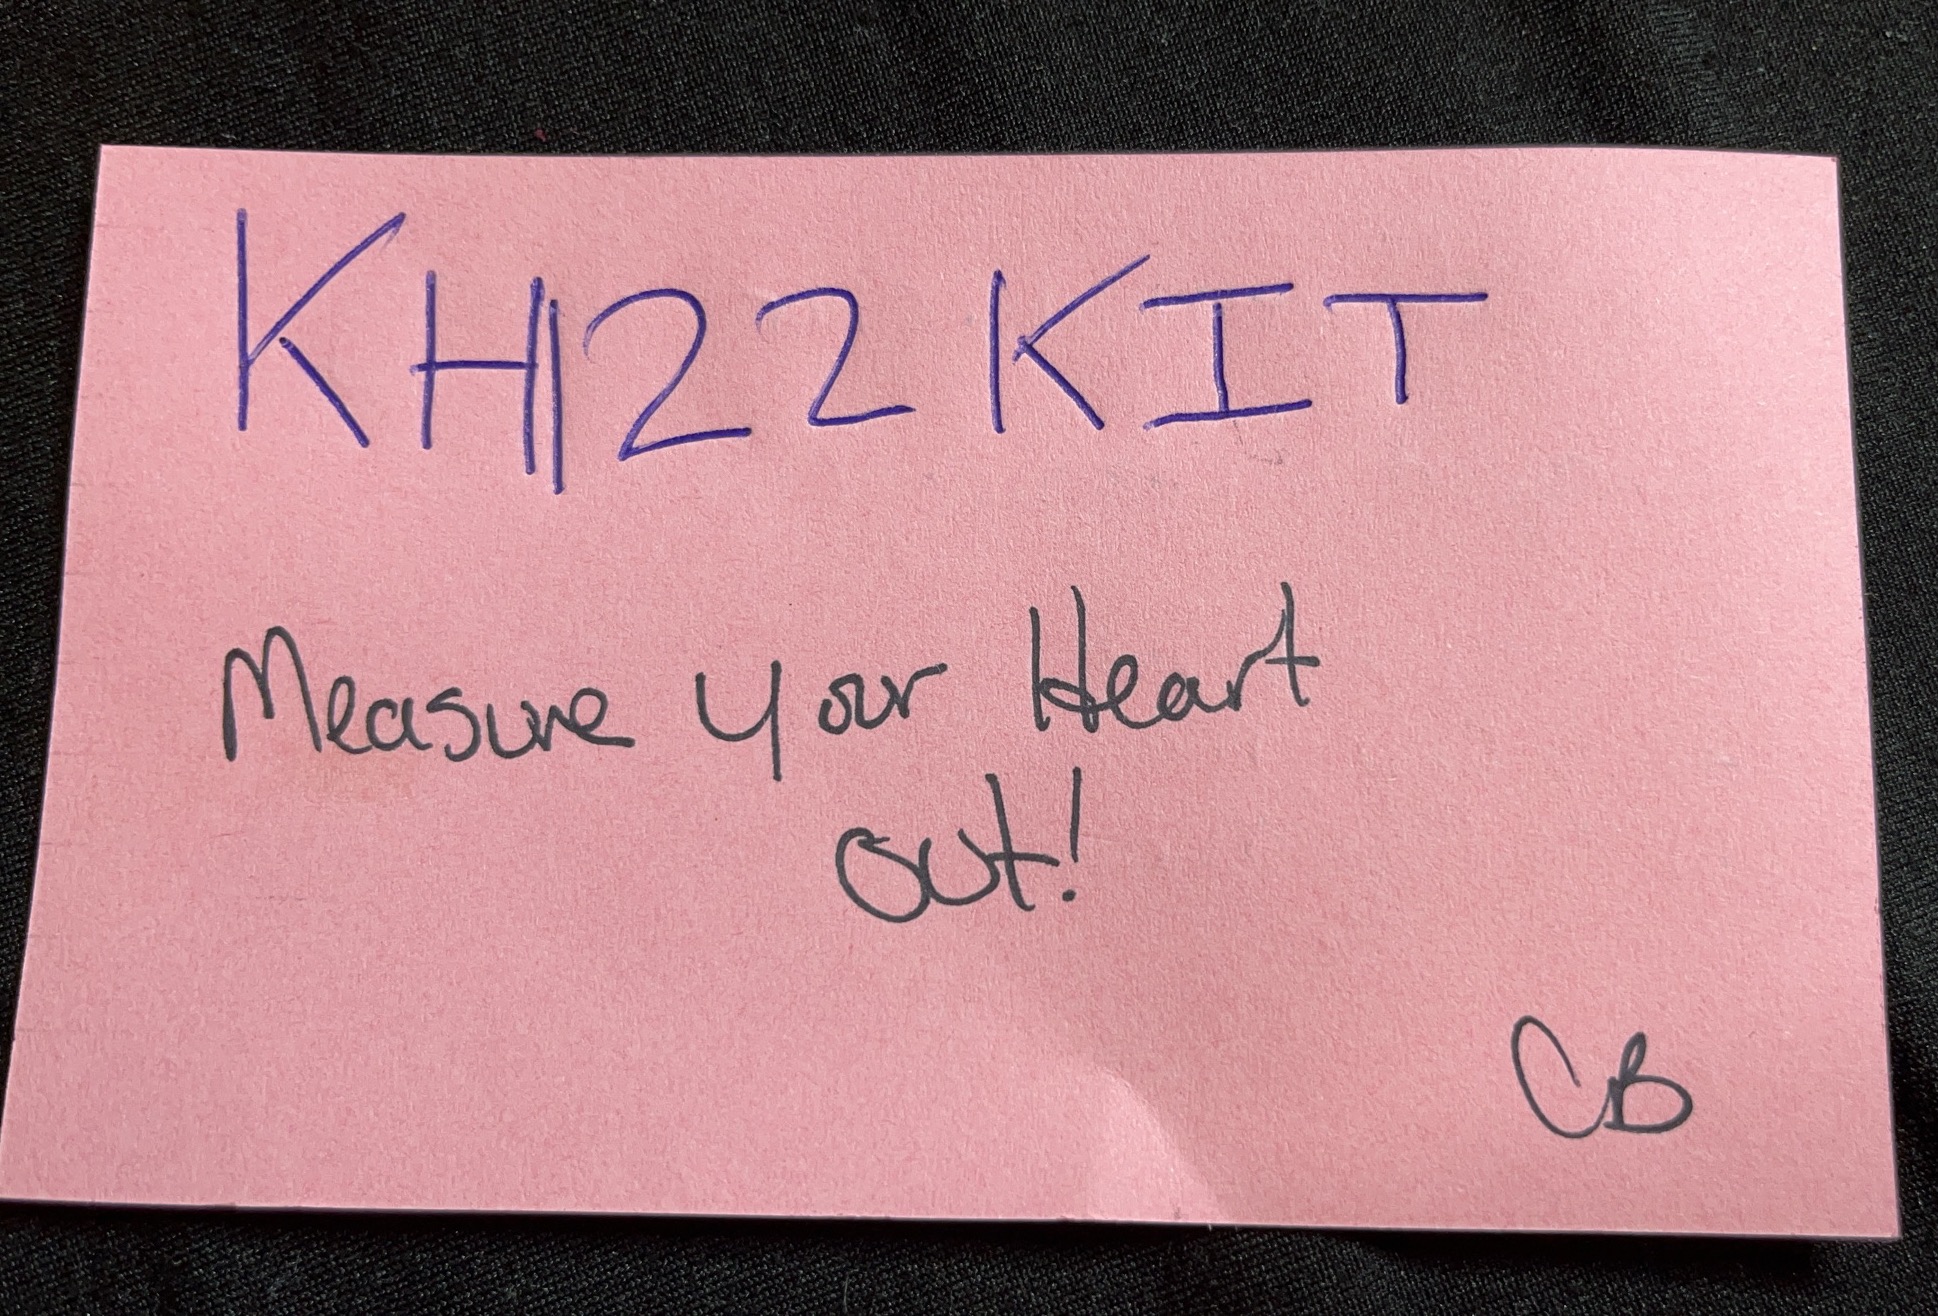 KH122 KIT
Measure Your Heart
Out!
CB